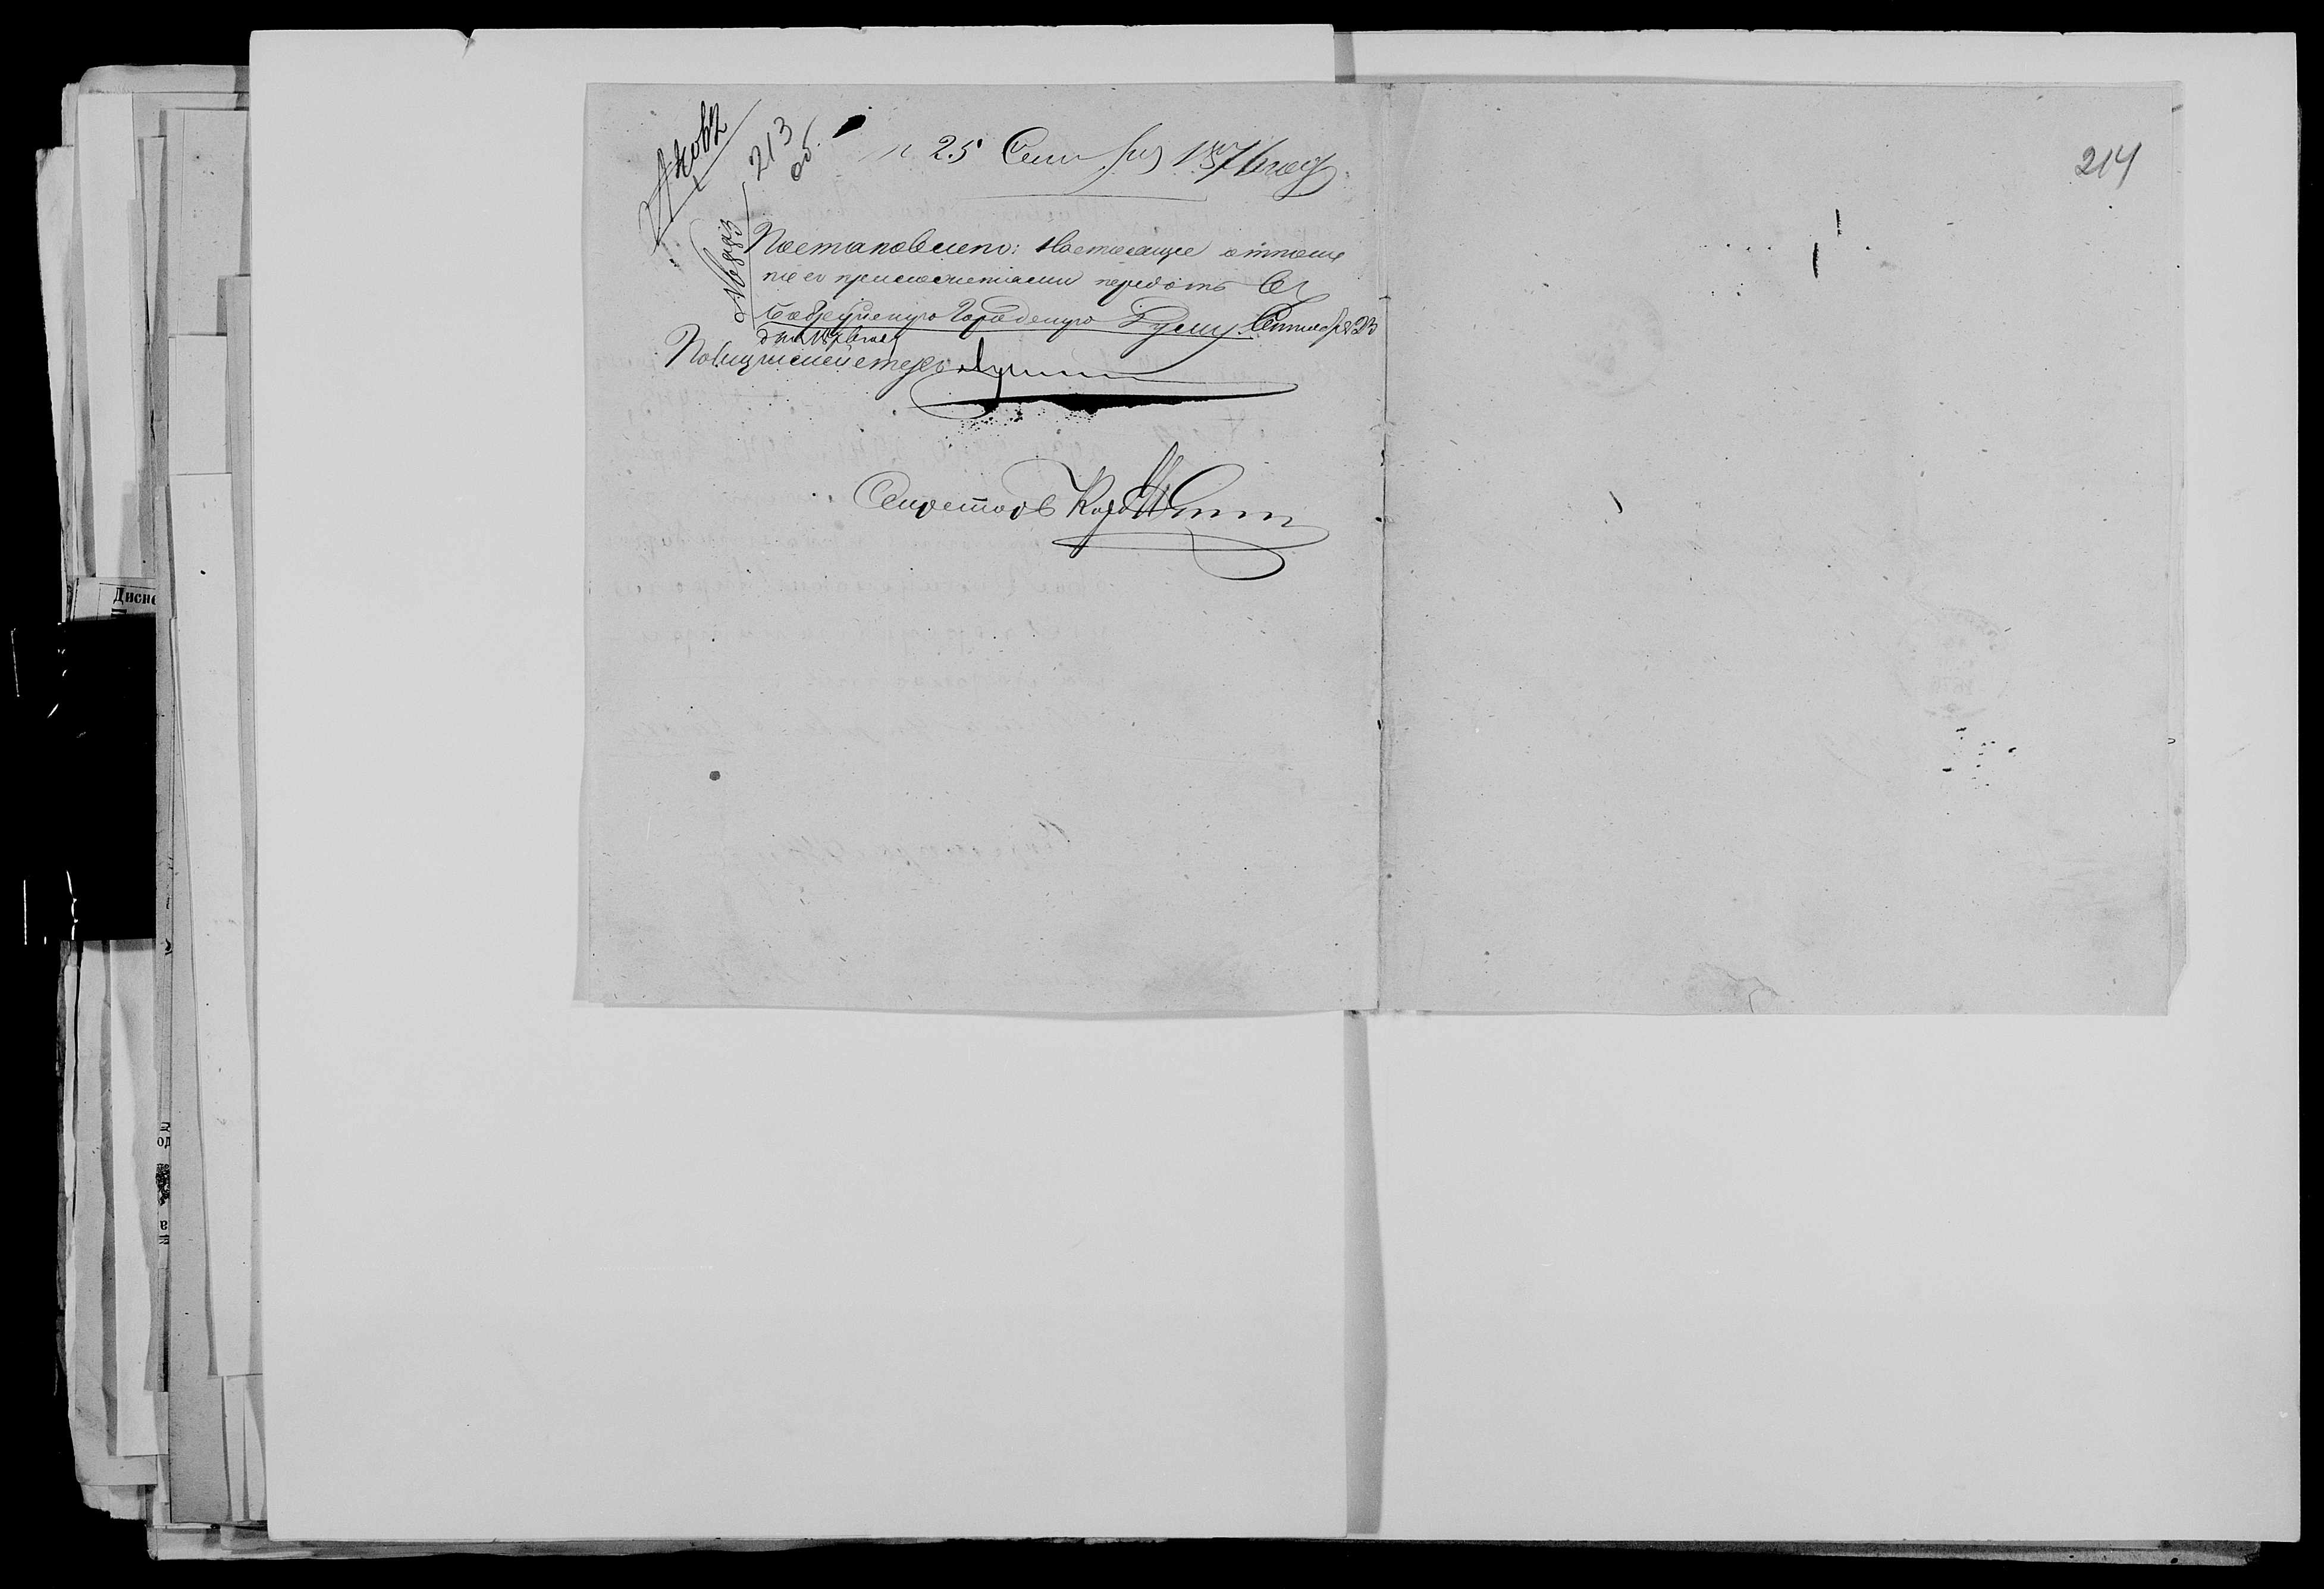 213
об.
25 Сентября 1876 года
Постановлено: Настоящее отноше
ніе съ приложеніями передать въ
Бобруйскую Городскую Думу. Сентября 23
дня 1876 года
Полицмейстеръ
Секретарь
214
Дисне